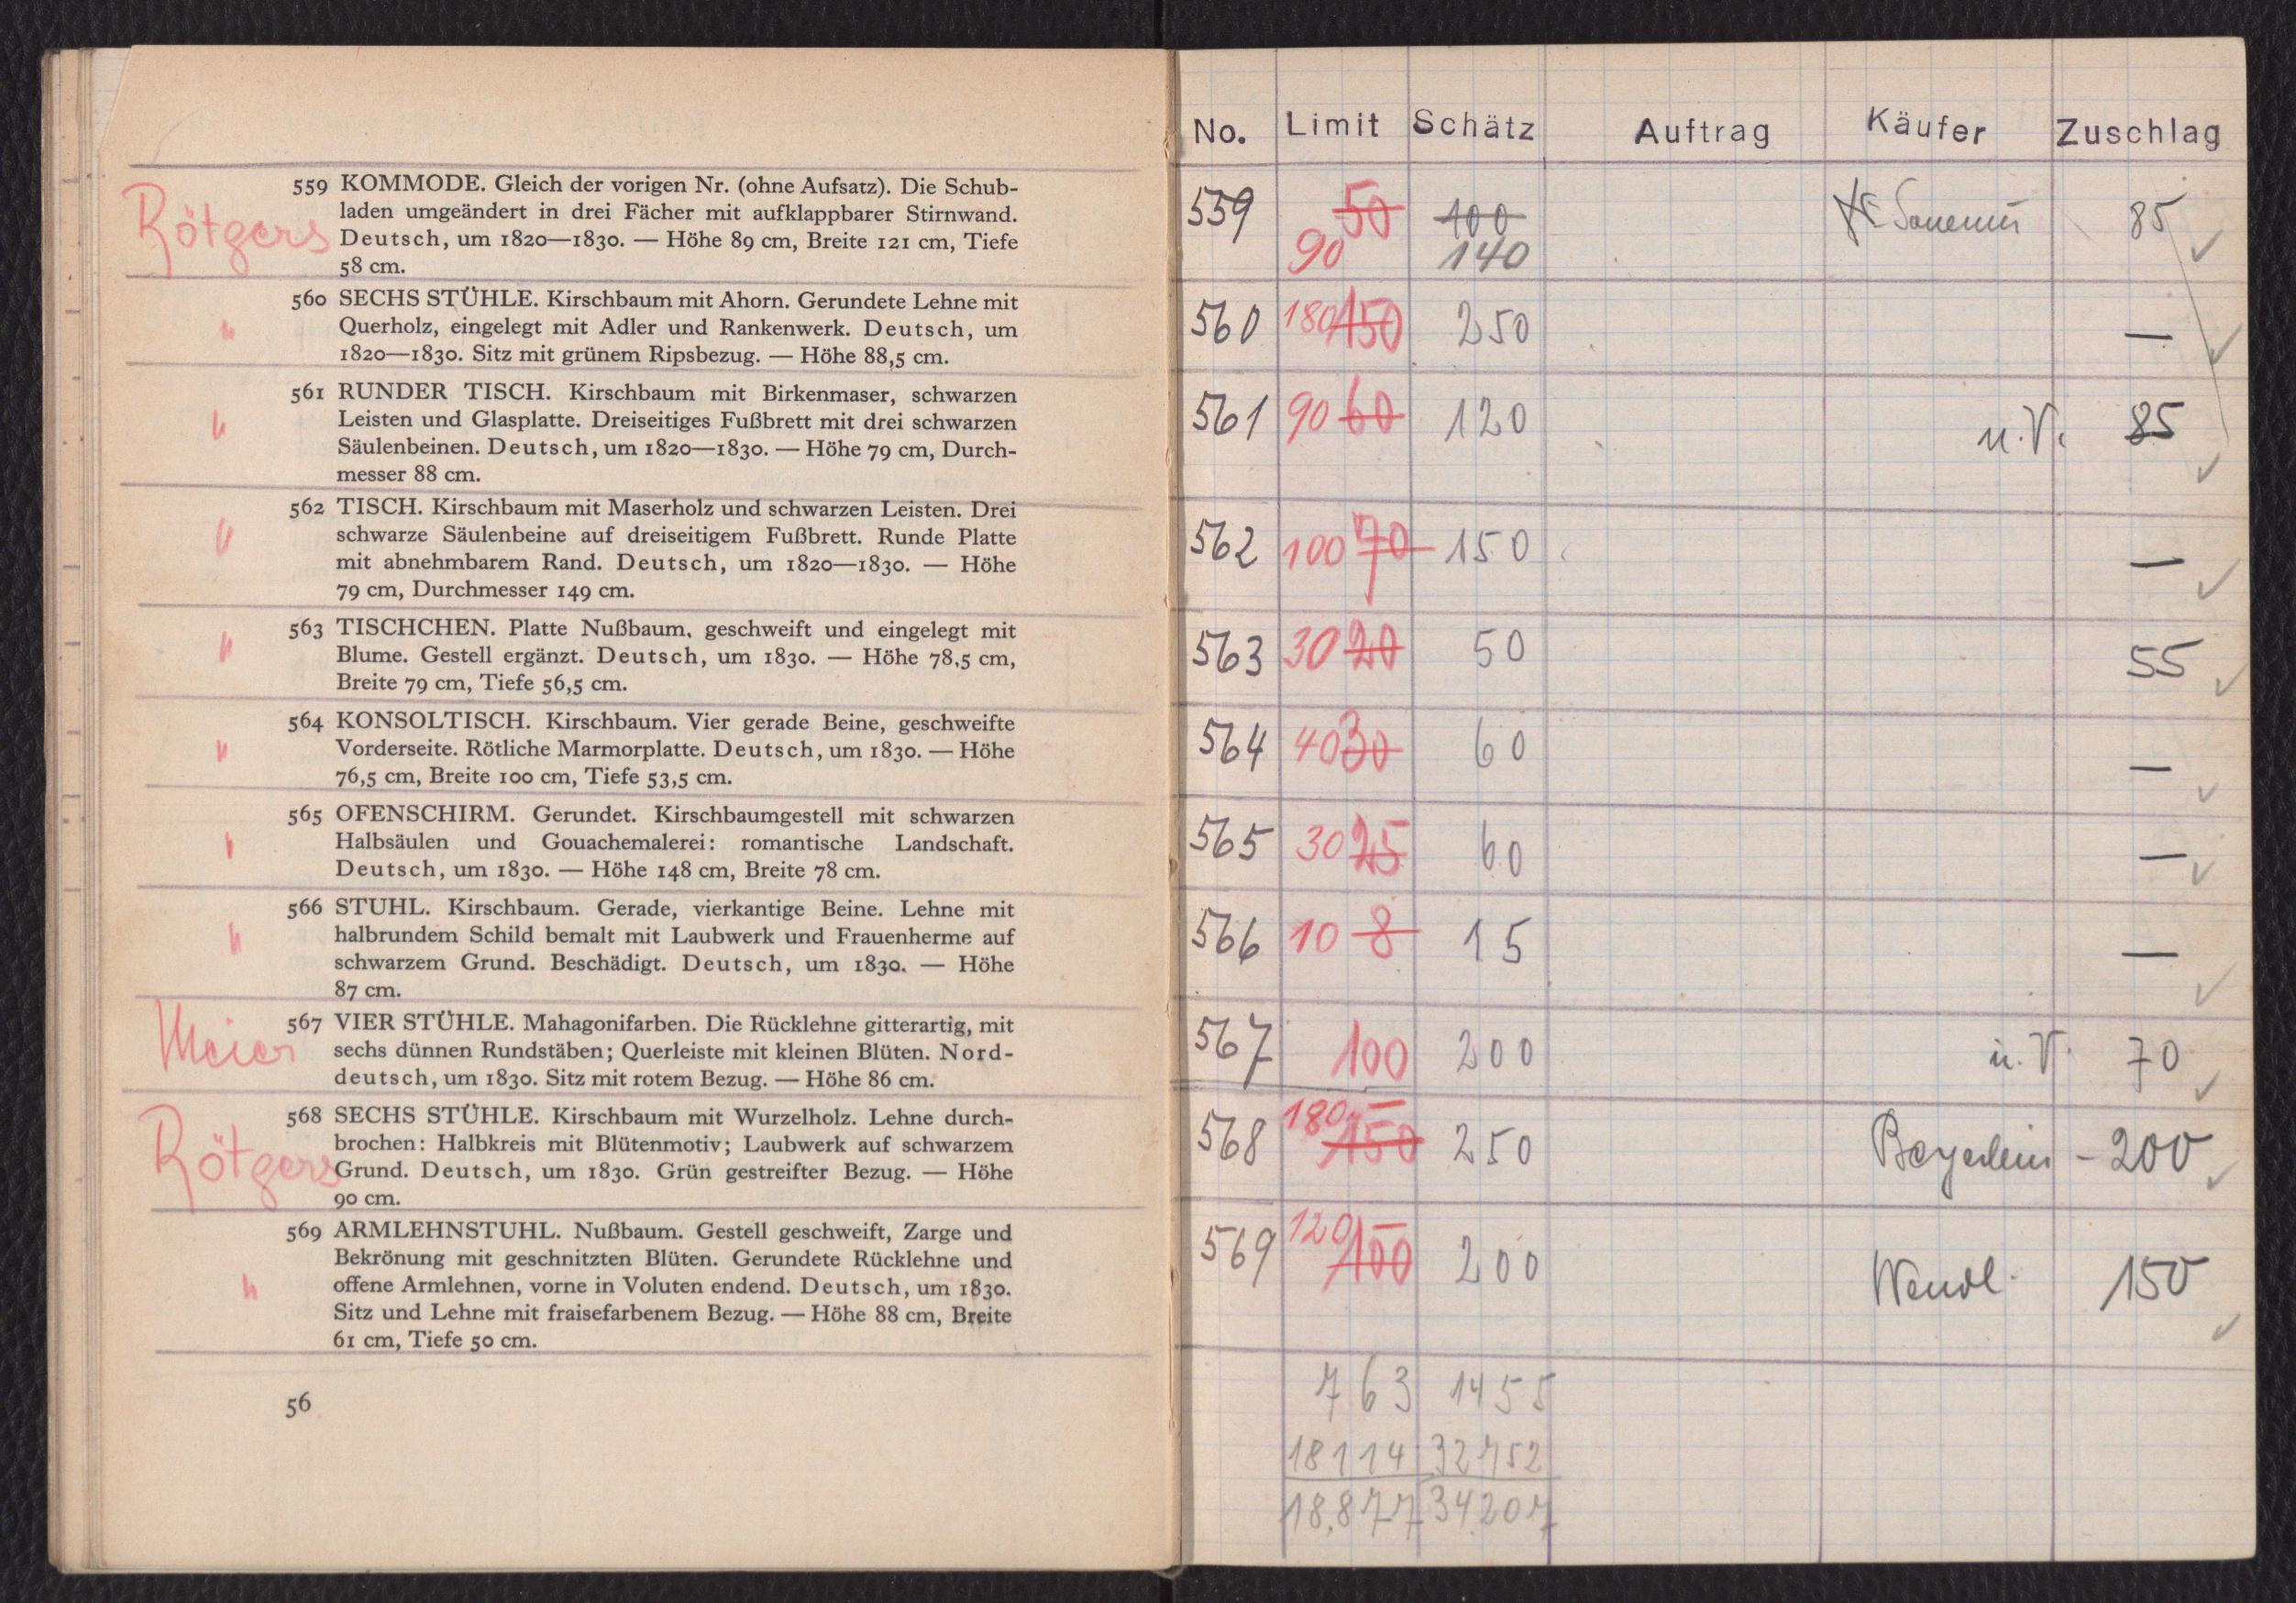 559 KOMMODE. Gleich der vorigen Nr. (ohne Aufsatz). Die Schub-
laden umgeändert in drei Fächer mit aufklappbarer Stirnwand.
Rötgers
Deutsch, um 1820—1830. — Höhe 89 cm, Breite 121 cm, Tiefe
58 cm.
560 SECHS STÜHLE. Kirschbaum mit Ahorn. Gerundete Lehne mit
" Querholz, eingelegt mit Adler und Rankenwerk. Deutsch, um
1820—1830. Sitz mit grünem Ripsbezug. — Höhe 88,5 cm.
561 RUNDER TISCH. Kirschbaum mit Birkenmaser, schwarzen
" Leisten und Glasplatte. Dreiseitiges Fußbrett mit drei schwarzen
Säulenbeinen. Deutsch, um 1820—1830. — Höhe 79 cm, Durch-
messer 88 cm.
562 TISCH. Kirschbaum mit Maserholz und schwarzen Leisten. Drei
" schwarze Säulenbeine auf dreiseitigem Fußbrett. Runde Platte
mit abnehmbarem Rand. Deutsch, um 1820—1830. — Höhe
79 cm, Durchmesser 149 cm.
563 TISCHCHEN. Platte Nußbaum, geschweift und eingelegt mit
" Blume. Gestell ergänzt. Deutsch, um 1830. — Höhe 78,5 cm,
Breite 79 cm, Tiefe 56,5 cm.
564 KONSOLTISCH. Kirschbaum. Vier gerade Beine, geschweifte
" Vorderseite. Rötliche Marmorplatte. Deutsch, um 1830. — Höhe
76,5 cm, Breite 100 cm, Tiefe 53,5 cm.
565 OFENSCHIRM. Gerundet. Kirschbaumgestell mit schwarzen
" Halbsäulen und Gouachemalerei: romantische Landschaft.
Deutsch, um 1830. — Höhe 148 cm, Breite 78 cm.
566 STUHL. Kirschbaum. Gerade, vierkantige Beine. Lehne mit
" halbrundem Schild bemalt mit Laubwerk und Frauenherme auf
schwarzem Grund. Beschädigt. Deutsch, um 1830. — Höhe
87 cm.
567 VIER STÜHLE. Mahagonifarben. Die Rücklehne gitterartig, mit
Meier
sechs dünnen Rundstäben; Querleiste mit kleinen Blüten. Nord-
deutsch, um 1830. Sitz mit rotem Bezug. — Höhe 86 cm.
568 SECHS STÜHLE. Kirschbaum mit Wurzelholz. Lehne durch-
brochen: Halbkreis mit Blütenmotiv; Laubwerk auf schwarzem
Rötgers
Grund. Deutsch, um 1830. Grün gestreifter Bezug. — Höhe
90 cm.
569 ARMLEHNSTUHL. Nußbaum. Gestell geschweift, Zarge und
Bekrönung mit geschnitzten Blüten. Gerundete Rücklehne und
" offene Armlehnen, vorne in Voluten endend. Deutsch, um 1830.
Sitz und Lehne mit fraisefarbenem Bezug. — Höhe 88 cm, Breite
61 cm, Tiefe 50 cm.
56
No. Limit Schätz Auftrag Käufer Zuschlag
559 50 100 85 ✓
90 140
560 180 150 250 — ✓
561 90 60 120 u.V. 85 ✓
562 100 70 150 — ✓
563 30 20 50 55 ✓
564 40 30 60 — ✓
565 30 25 60 — ✓
566 10 8 15 — ✓
567 100 200 u.V. 70 ✓
568 180 150 250 Beyerlein - 200 ✓
569 120 100 200 Wendl. 150 ✓
763 1455
18114 32752
18.877 34.207